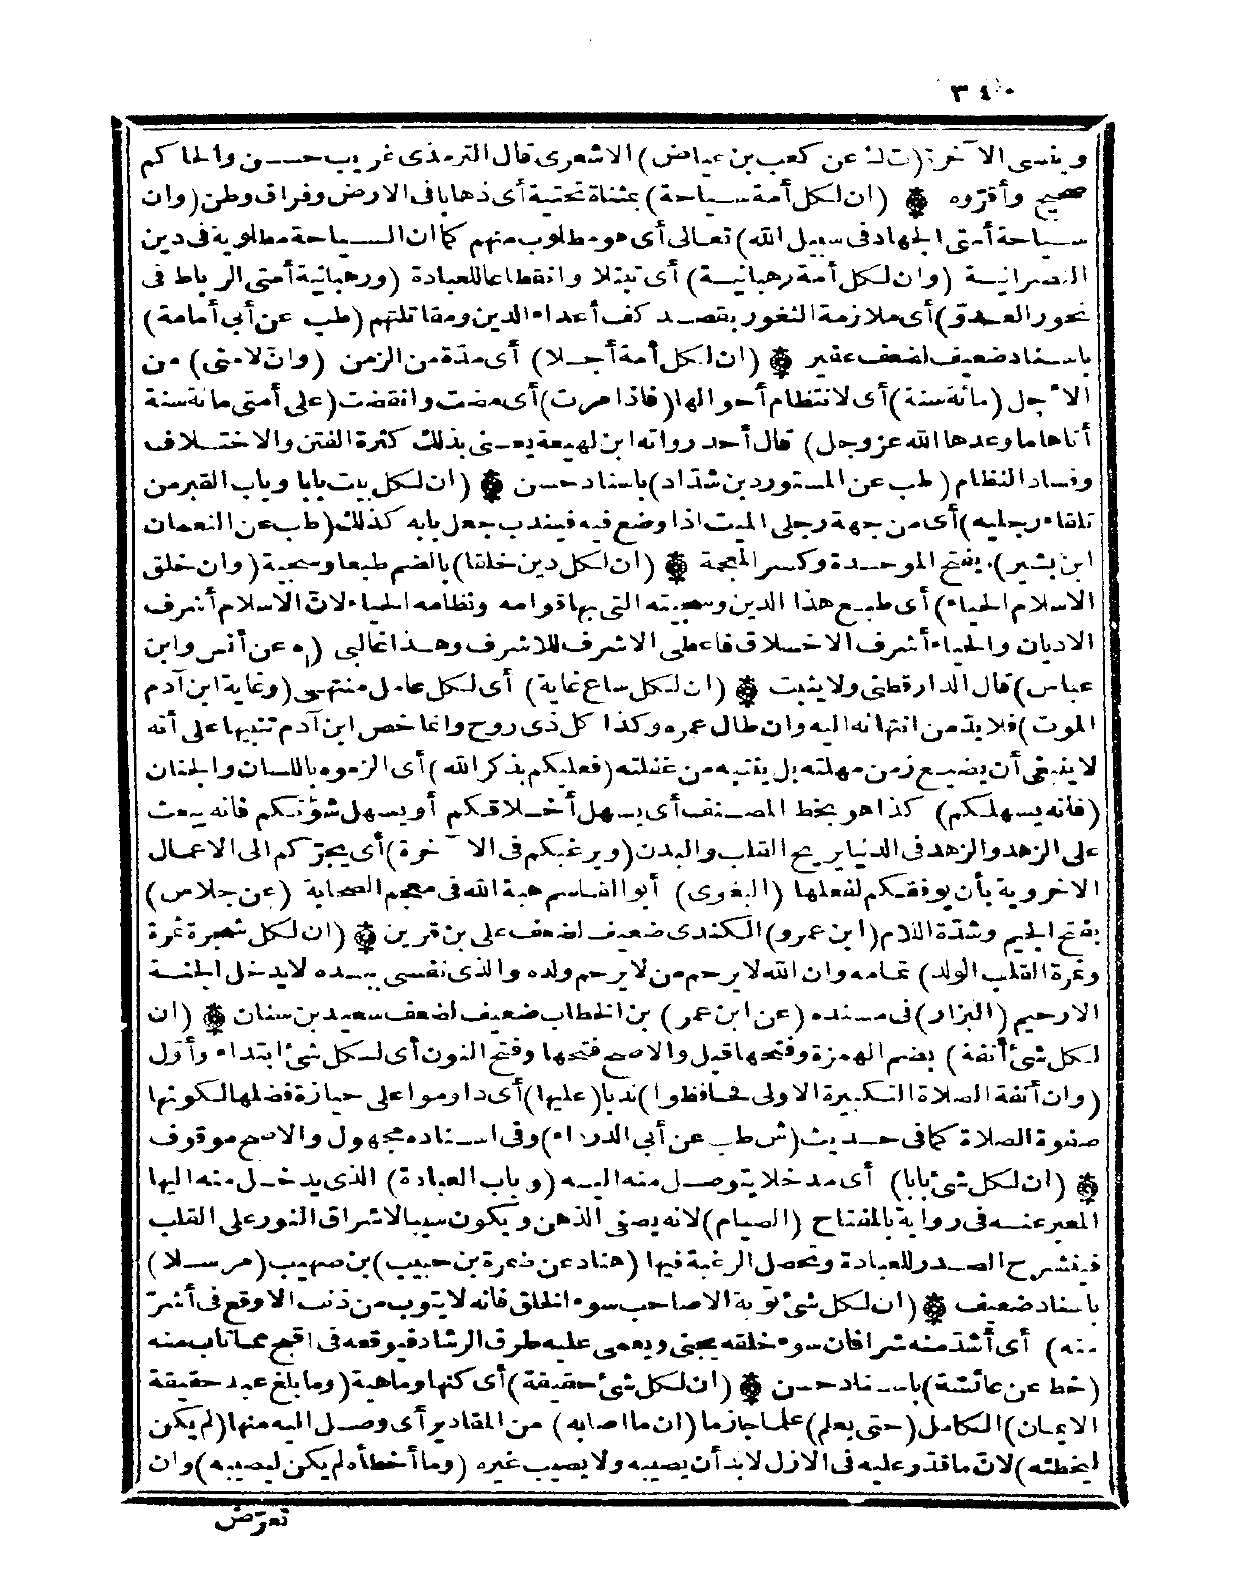 ٣٤٠
وينسى الآخرة (ت ك عن كعب بن عياض) الاشعرى قال الترمذى غريب حسن والحاكم
صحيح وأقرّوه ۞ (ان لكل أمة سياحة) بمثناة تحتية أى ذهابا فى الارض وفراق وطن (وان
سياحة أمتى الجهاد فى سبيل الله) تعالى أى هو مطلوب منهم كما ان السياحة مطلوبة فى دين
النصرانية (وان لكل أمة رهبانية) أى تبتلا وانقطاعا للعبادة (ورهبانية أمتى الرباط فى
نحور العدوّ) أى ملازمة الثغور بقصد كف أعداء الدين ومقاتلتهم (طب عن أبى أمامة)
باسناد ضعيف لضعف عفير ۞ (ان لكل أمة أجلا) أى مدّة من الزمن (وان لامتى) من
الاجل (مائة سنة) أى لانتظام أحوالها (فاذا مرت) أى مضت وانقضت (على أمتى مائة سنة
أتاها ما وعدها الله عز وجل) قال أحد رواته ابن لهيعة يعنى بذلك كثرة الفتن والاختلاف
وفساد النظام (طب عن المستورد بن شدّاد) باسناد حسن ۞ (ان لكل بيت بابا وباب القبر من
تلقاء رجليه) أى من جهة رجلى الميت اذا وضع فيه فيندب جعل بابه كذلك (طب عن النعمان
ابن بشير) بفتح الموحدة وكسر المعجمة ۞ (ان لكل دين خلقا) بالضم طبعا وسجية (وان خلق
الاسلام الحياء) أى طبع هذا الدين وسجيته التى بها قوامه ونظامه الحياء لانّ الاسلام أشرف
الاديان والحياء أشرف الاخلاق فاعطى الاشرف للاشرف وهذا غالبى (ه عن أنس وابن
عباس) قال الدارقطنى ولا يثبت ۞ (ان لكل ساع غاية) أى لكل عامل منتهى (وغاية ابن آدم
الموت) فلا بدّ من انتهائه اليه وان طال عمره وكذا كل ذى روح وانما خص ابن آدم تنبيها على أنه
لا ينبغى أن يضيع زمن مهلته بل ينتبه من غفلته (فعليكم بذكر الله) أى الزموه باللسان والجنان
(فانه يسهلكم) كذا هو بخط المصنف أى يسهل أخلاقكم أو يسهل شؤنكم فانه يبعث
على الزهد والزهد فى الدنيا يريح القلب والبدن (ويرغبكم فى الآخرة) أى يجرّكم الى الاعمال
الاخروية بأن يوفقكم لفعلها (البغوى) أبو القاسم هبة الله فى معجم الصحابة (عن جلاس)
بفتح الجيم وشدّة اللام (ابن عمرو) الكندى ضعيف لضعف على بن قرين ۞ (ان لكل شجرة ثمرة
وثمرة القلب الولد) تمامه وان الله لا يرحم من لا يرحم ولده والذى نفسى بيده لا يدخل الجنة
الا رحيم (البزار) فى مسنده (عن ابن عمر) بن الخطاب ضعيف لضعف سعيد بن سنان ۞ (ان
لكل شئ أنفة) بضم الهمزة وفتحها قيل والاصح فتحها وفتح النون أى لكل شئ ابتداء وأوّل
(وان أنفة الصلاة التكبيرة الاولى فحافظوا) ندبا (عليها) أى داوموا على حيازة فضلها لكونها
صفوة الصلاة كما فى حديث (ش طب عن أبى الدرداء) وفى اسناده مجهول والاصح موقوف
۞ (ان لكل شئ بابا) أى مدخلا يتوصل منه اليه (وباب العبادة) الذى يدخل منه اليها
المعبر عنه فى رواية بالمفتاح (الصيام) لانه يصفى الذهن ويكون سببا لاشراق النور على القلب
فينشرح الصدر للعبادة وتحصل الرغبة فيها (هناد عن ضمرة بن حبيب) بن صهيب (مرسلا)
باسناد ضعيف ۞ (ان لكل شئ توبة الا صاحب سوء الخلق فانه لا يتوب من ذنب الا وقع فى أشرّ
منه) أى أشدّ منه شرا فان سوء خلقه يجنى ويعمى عليه طرق الرشاد فيوقعه فى اقبح مما تاب منه
(خط عن عائشة) باسناد حسن ۞ (ان لكل شئ حقيقة) أى كنها وماهية (وما بلغ عبد حقيقة
الايمان) الكامل (حتى يعلم) علما جازما (ان ما اصابه) من المقادير أى وصل اليه منها (لم يكن
ليخطئه) لانّ ما قدّر عليه فى الازل لا بد أن يصيبه ولا يصيب غيره (وما أخطأه لم يكن ليصيبه) وان
تعرّض